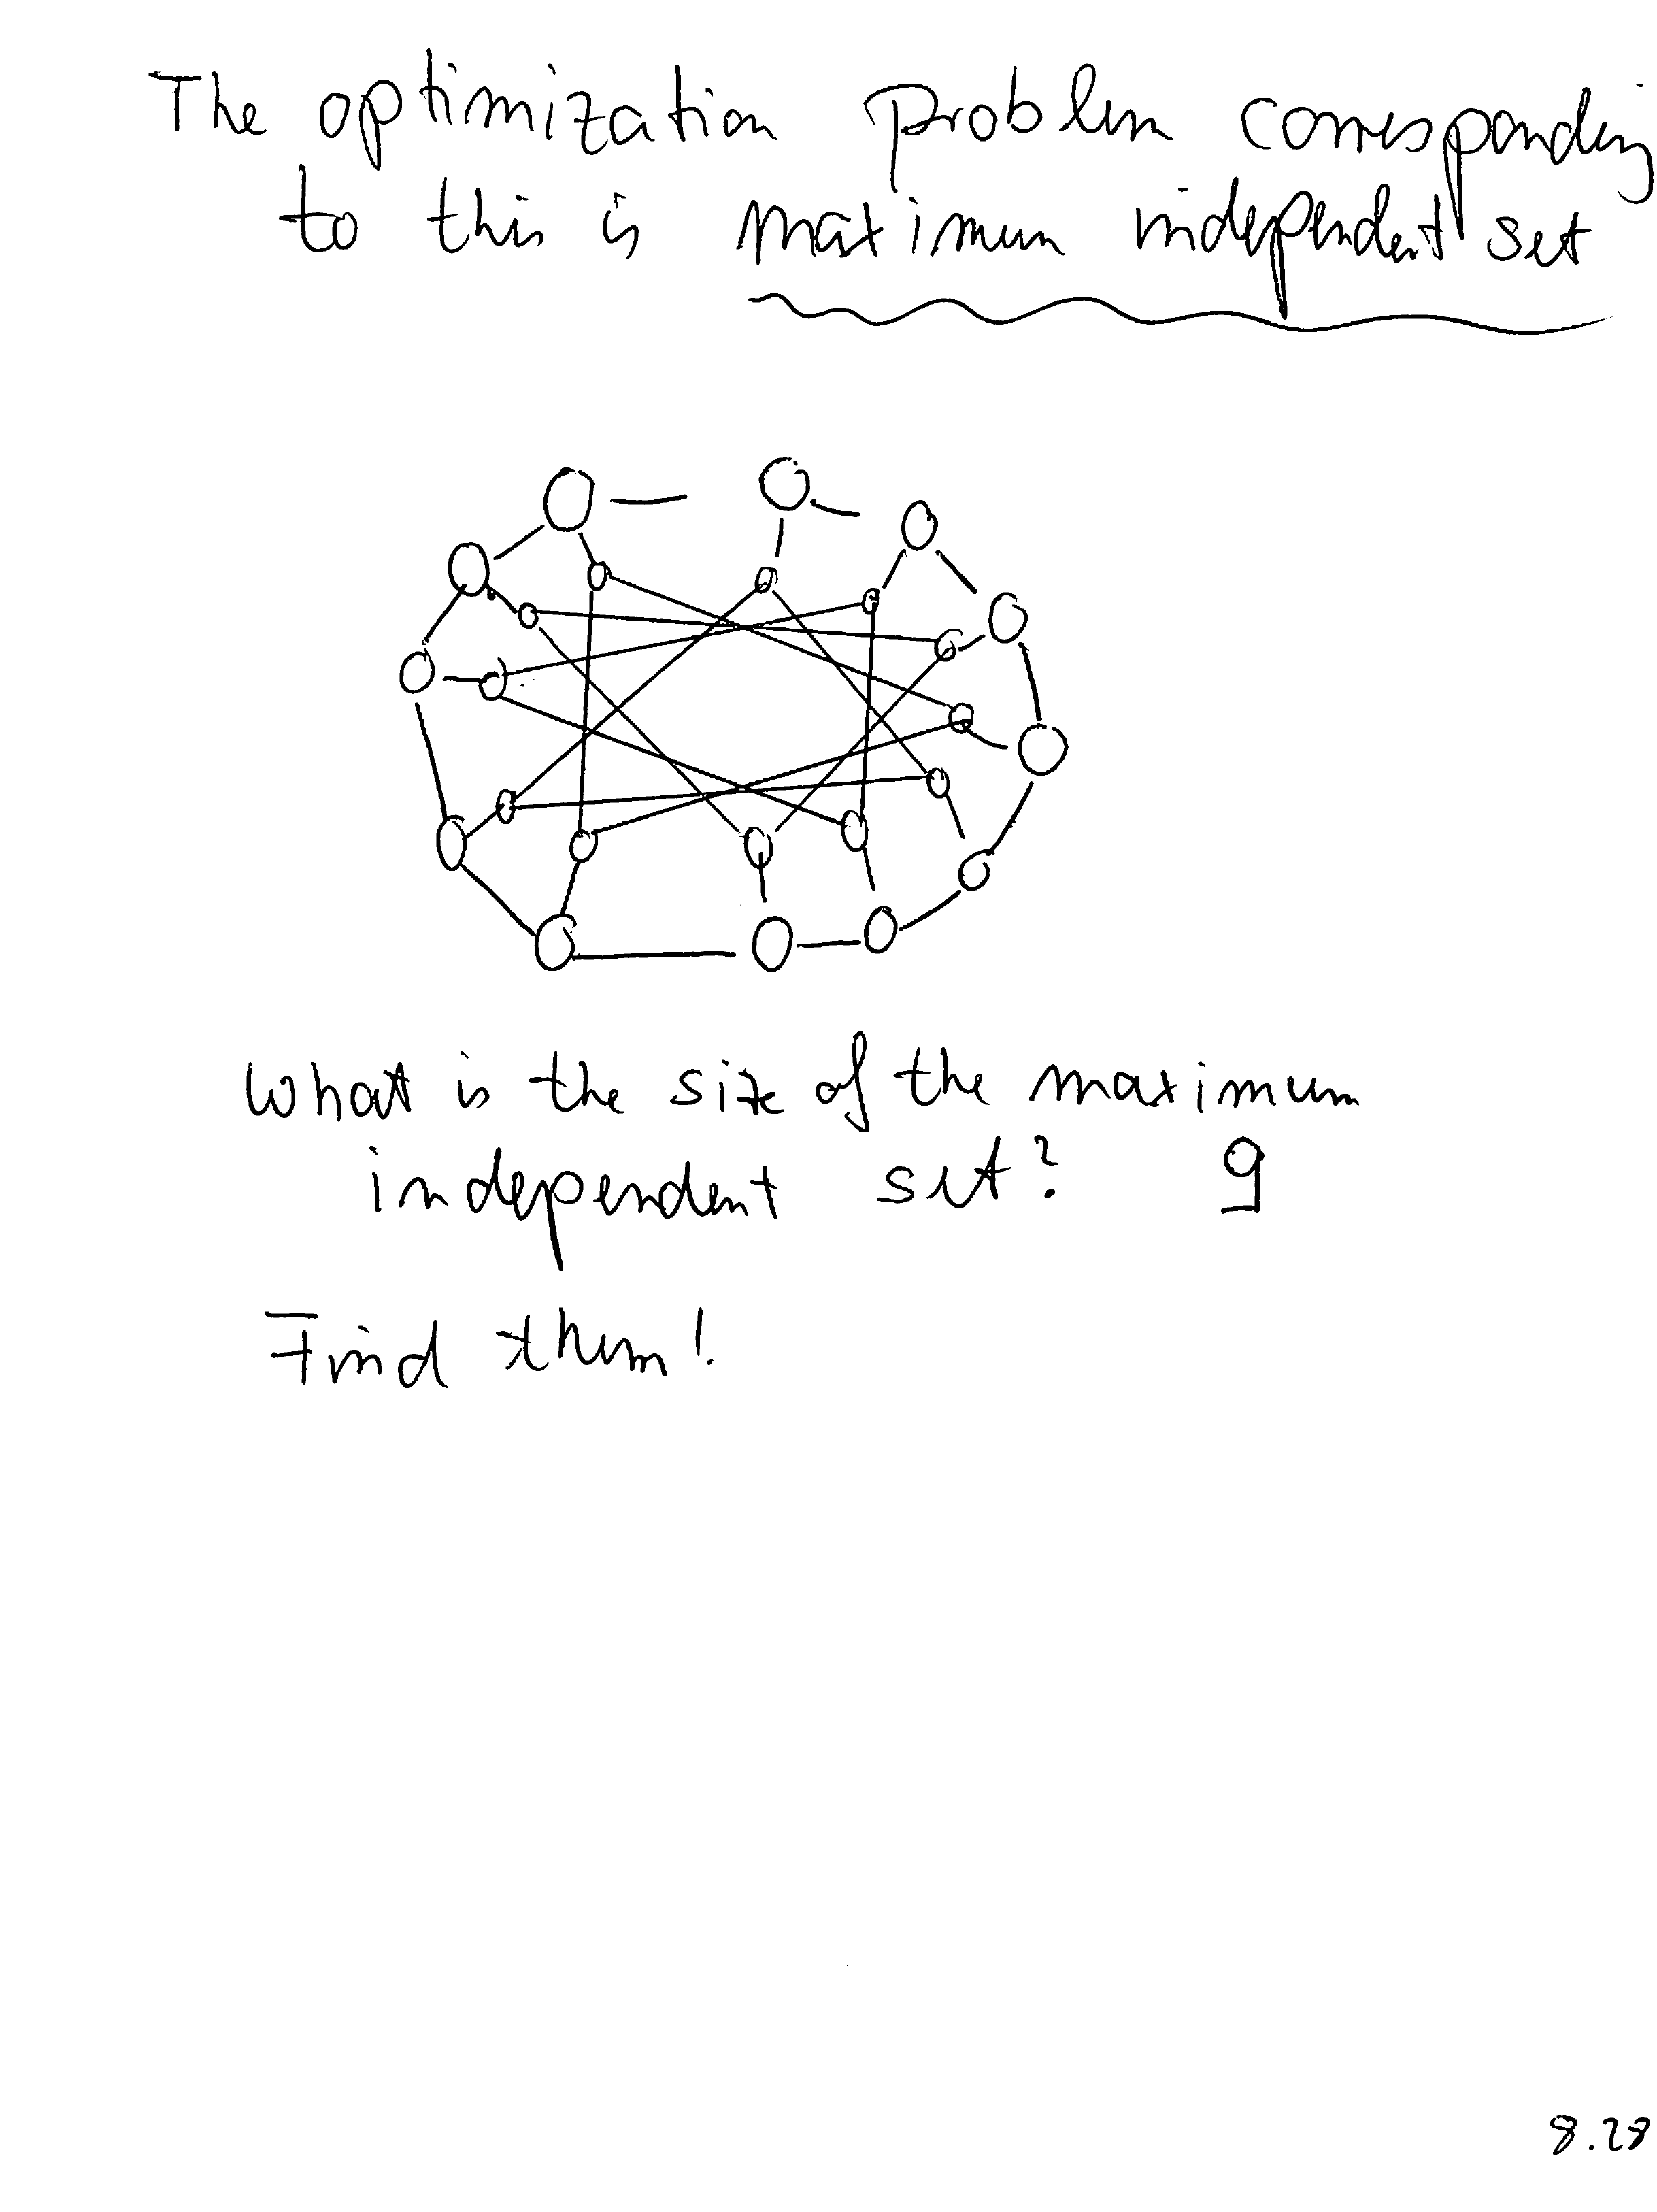 The optimization problem corresponding
to this is maximum independent set
What is the size of the maximum
independent set? 9
Find them!
8.28